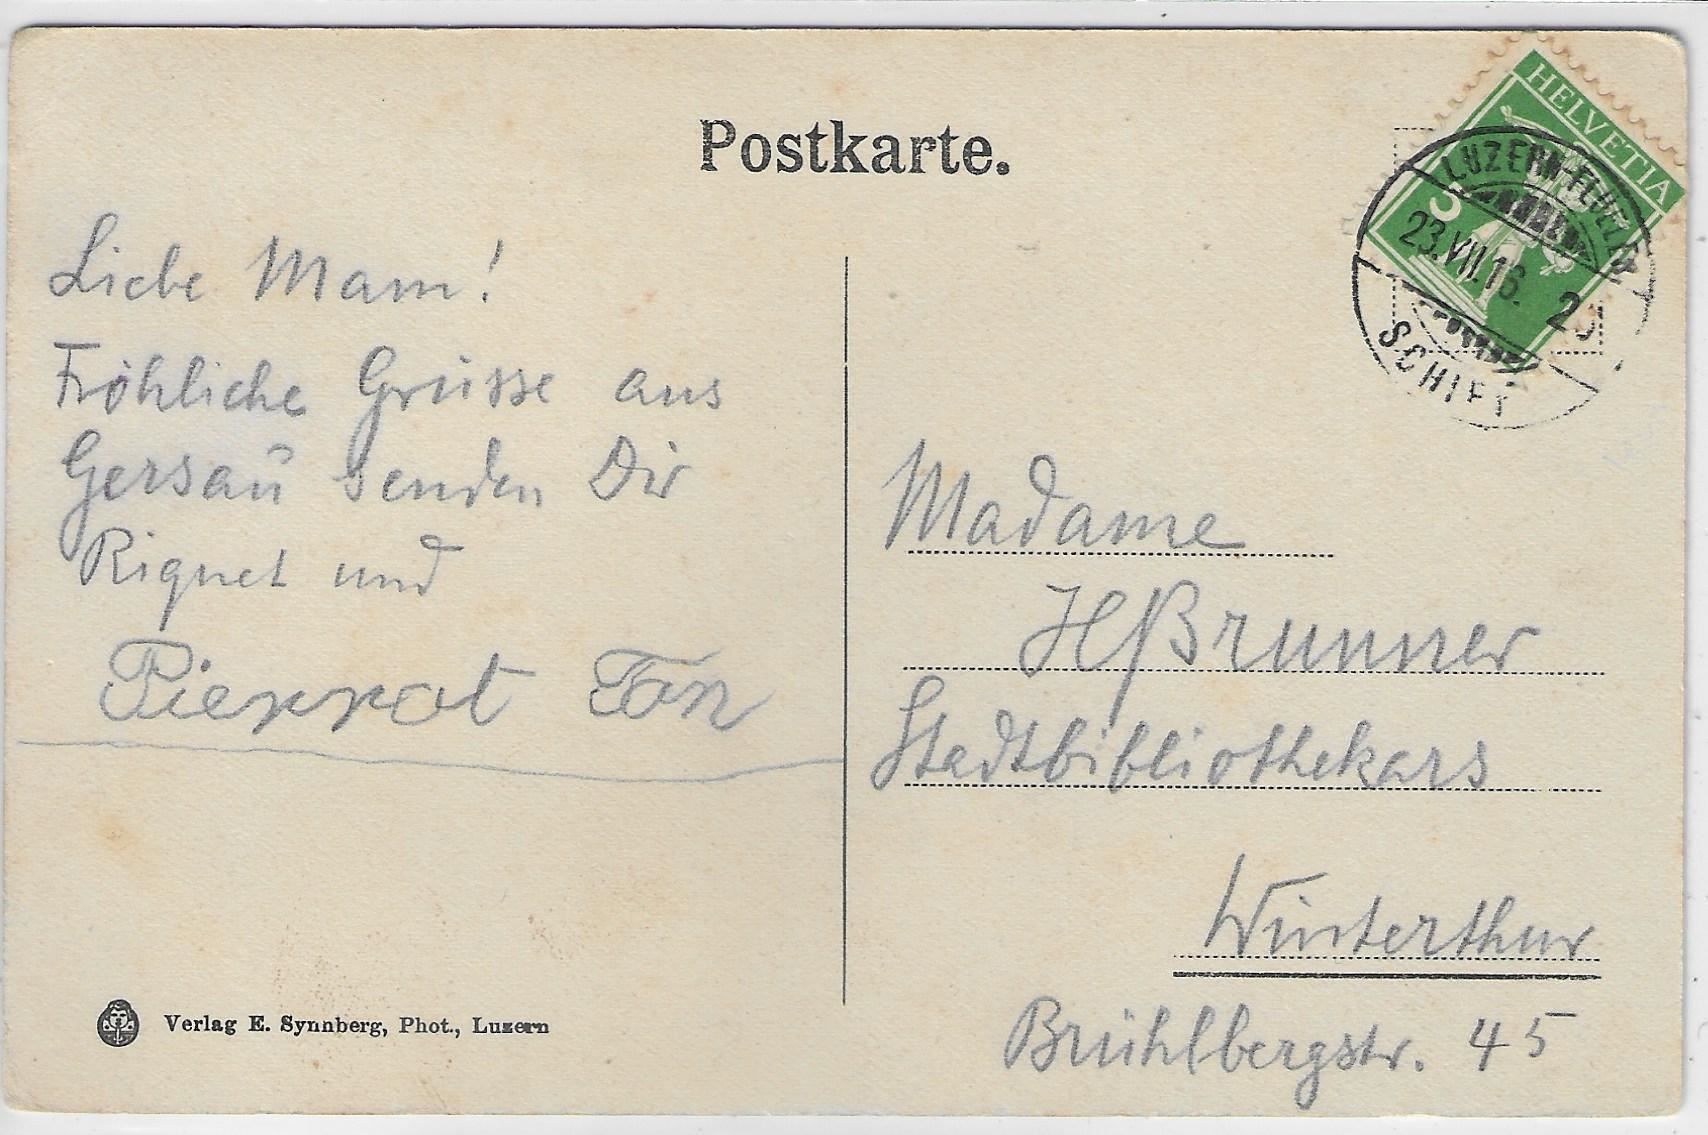 Postkarte.
HELVETIA
5
LUZERN-FLÜELEN
23.VII.16.
SCHIFF
Liebe Mam!
Fröhliche Grüsse aus
Gersau senden Dir
Riquet und
Pierrot Ton
Madame
H. Brunner
Stadtbibliothekars
Winterthur
Brühlbergstr. 45
Verlag E. Synnberg, Phot., Luzern